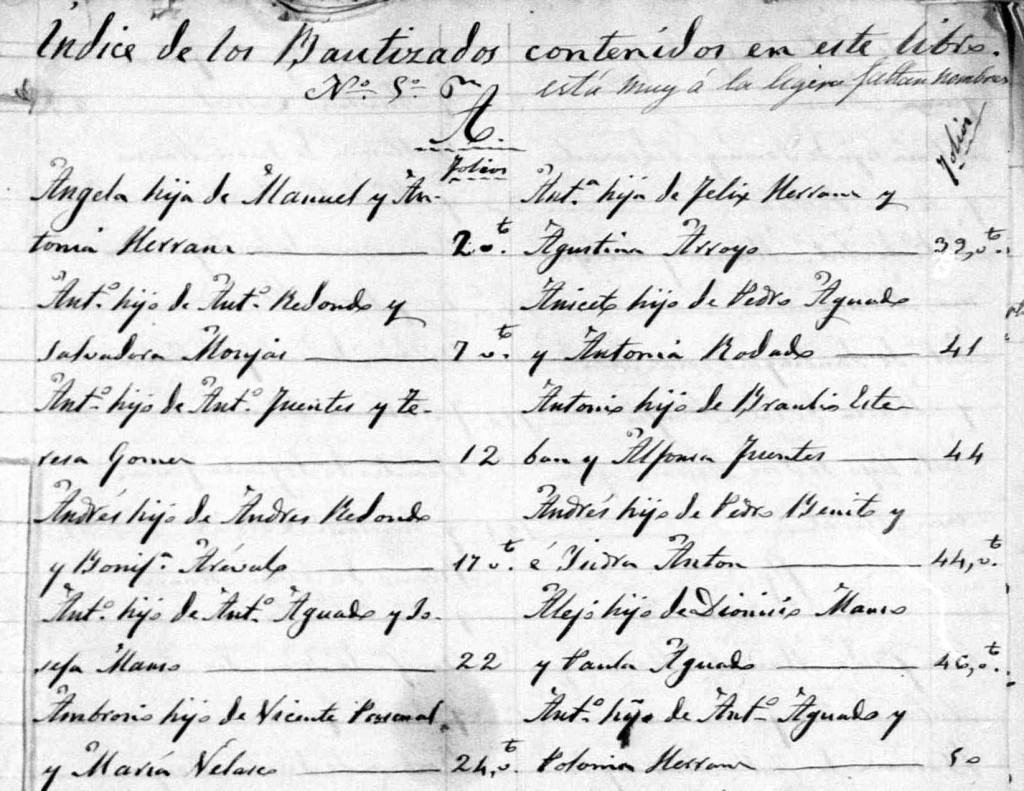 Indice de los Bautizados contenidos en este libro.
Nº 5º
está muy á la ligera faltan nombres
A.
Folios
Angela hija de Manuel y An-
tonia Herranz 2 vt.
Antº hijo de Antº Redondo y
Salvadora Monjas 7 vt.
Antº hijo de Antº Fuentes y Te-
resa Gomez 12
Andrés hijo de Andres Redondo
y Bonifª Arévalo 17 vt.
Antº hijo de Antº Aguado y Jo-
sefa Manso 22
Ambrosio hijo de Vicente Pascual
y María Velasco 24, vt.
Folios
Antª hija de Felix Herranz y
Agustina Arroyo 39, vt.
Aniceto hijo de Pedro Aguado
y Antonia Rodado 41
Antonio hijo de Braulio Este-
ban y Alfonsa Fuentes 44
Andrés hijo de Pedro Benito y
é Isidra Anton 44, vt.
Alejo hijo de Dionisio Manso
y Paula Aguado 46, vt.
Antº hijo de Antº Aguado y
Polonia Herranz 50